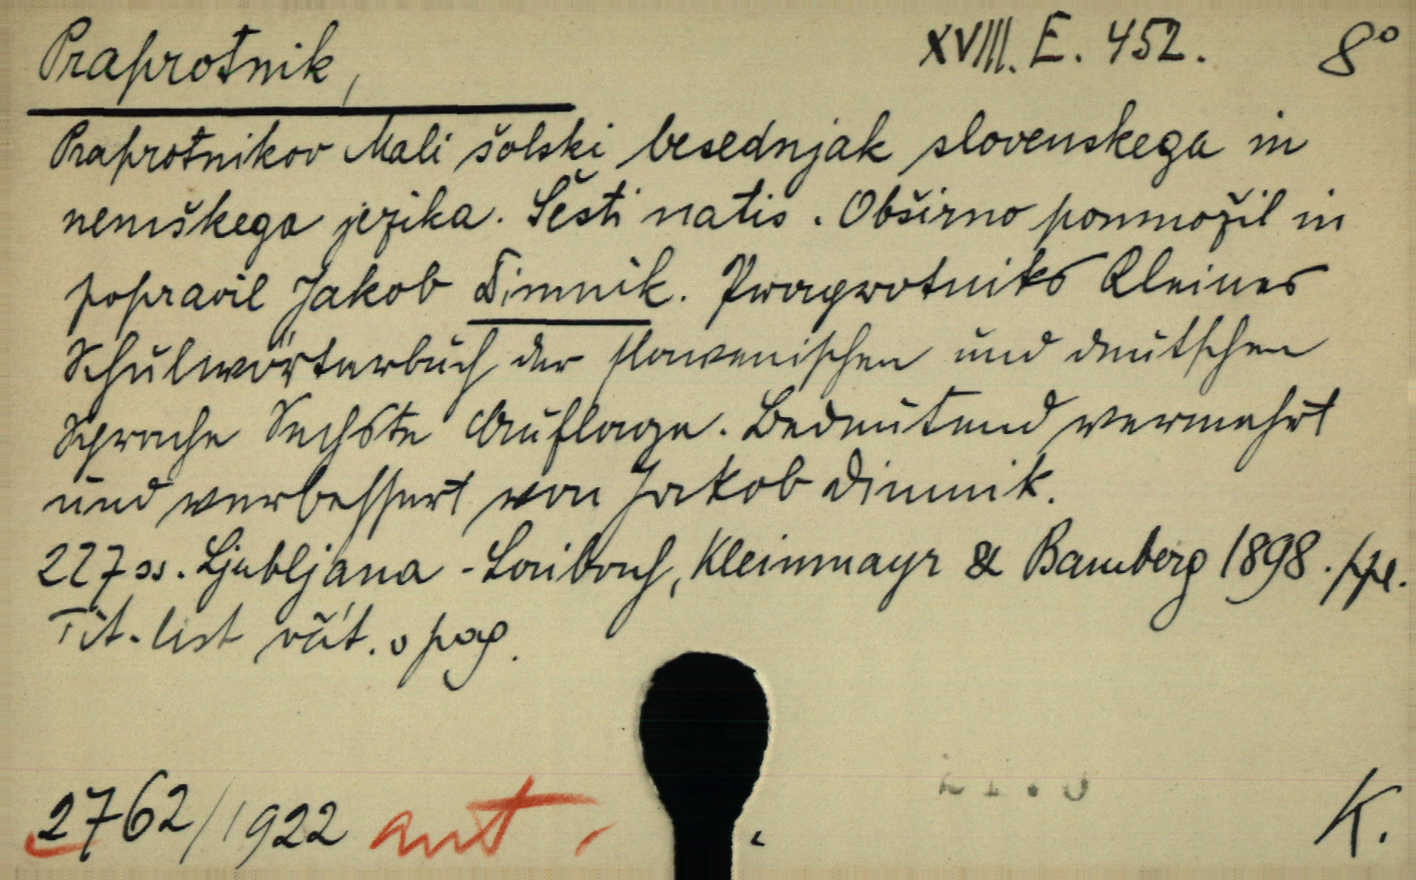 Praprotnik, XVIII. E. 452. 8°
Praprotnikov Mali šolski besednjak slovenskega in
nemškega jezika. Šesti natis. Obširno pomnožil in
popravil Jakob Dimnik. Praprotniks Kleines
Schulwörterbuch der slowenischen und deutschen
Sprache Sechste Auflage. Bedeutend vermehrt
und verbessert von Jakob Dimnik.
227 ss. Ljubljana - Laibach, Kleinmayr & Bamberg 1898. ppl.
Tit. list včít. v pag.
2762/1922 ant. K.